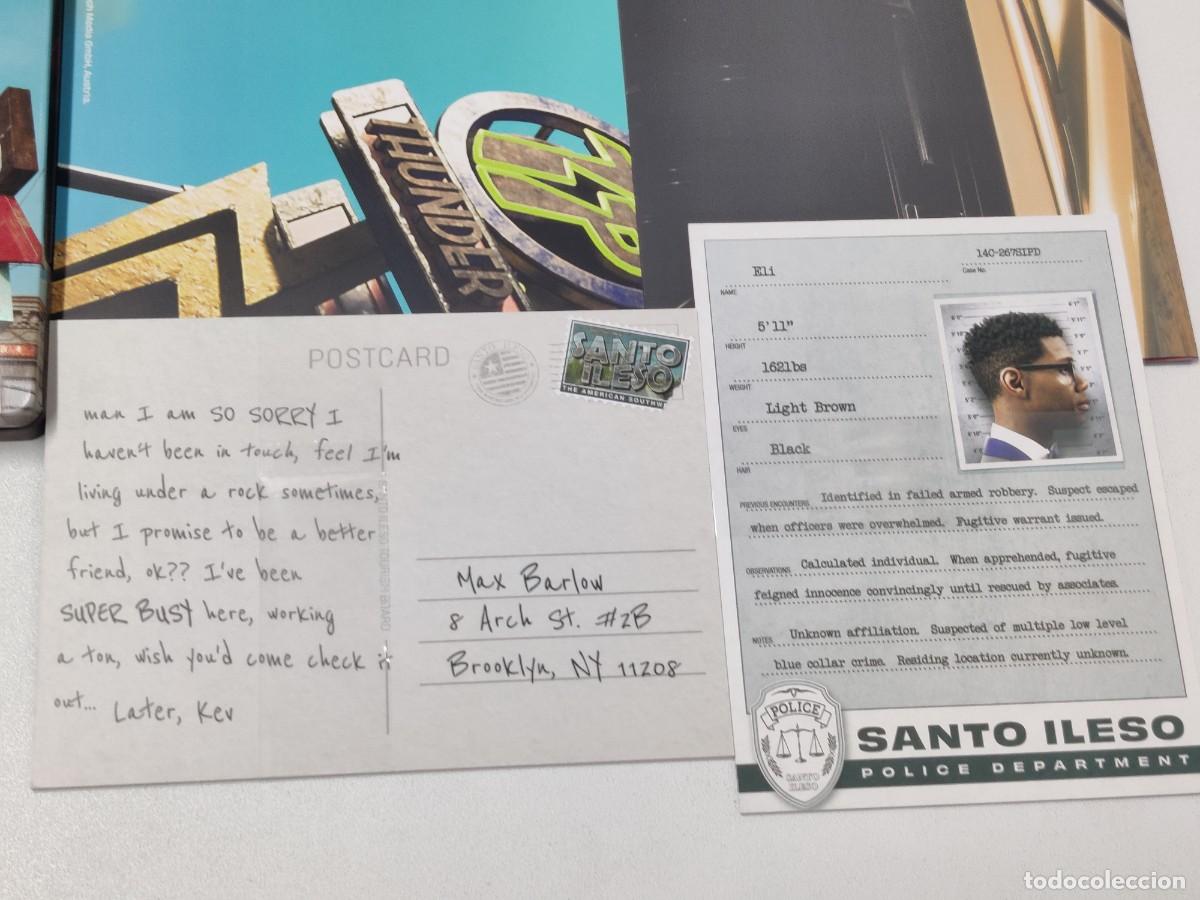 ch Media GmbH, Austria.
THUNDER
POSTCARD
SANTO ILESO
SANTO
ILESO
THE AMERICAN SOUTHW
man I am SO SORRY I
haven't been in touch, feel I'm
living under a rock sometimes,
but I promise to be a better
friend, ok?? I've been
SUPER BUSY here, working
a ton, wish you'd come check it
out... Later, Kev
Max Barlow
8 Arch St. #2B
Brooklyn, NY 11208
Eli
NAME
14C-267SIPD
Case No.
5'11"
HEIGHT
162lbs
WEIGHT
Light Brown
EYES
Black
HAIR
PREVIOUS ENCOUNTERS Identified in failed armed robbery. Suspect escaped
when officers were overwhelmed. Fugitive warrant issued.
OBSERVATIONS Calculated individual. When apprehended, fugitive
feigned innocence convincingly until rescued by associates.
NOTES Unknown affiliation. Suspected of multiple low level
blue collar crime. Residing location currently unknown.
POLICE
SANTO
ILESO
SANTO ILESO
POLICE DEPARTMENT
todocoleccion